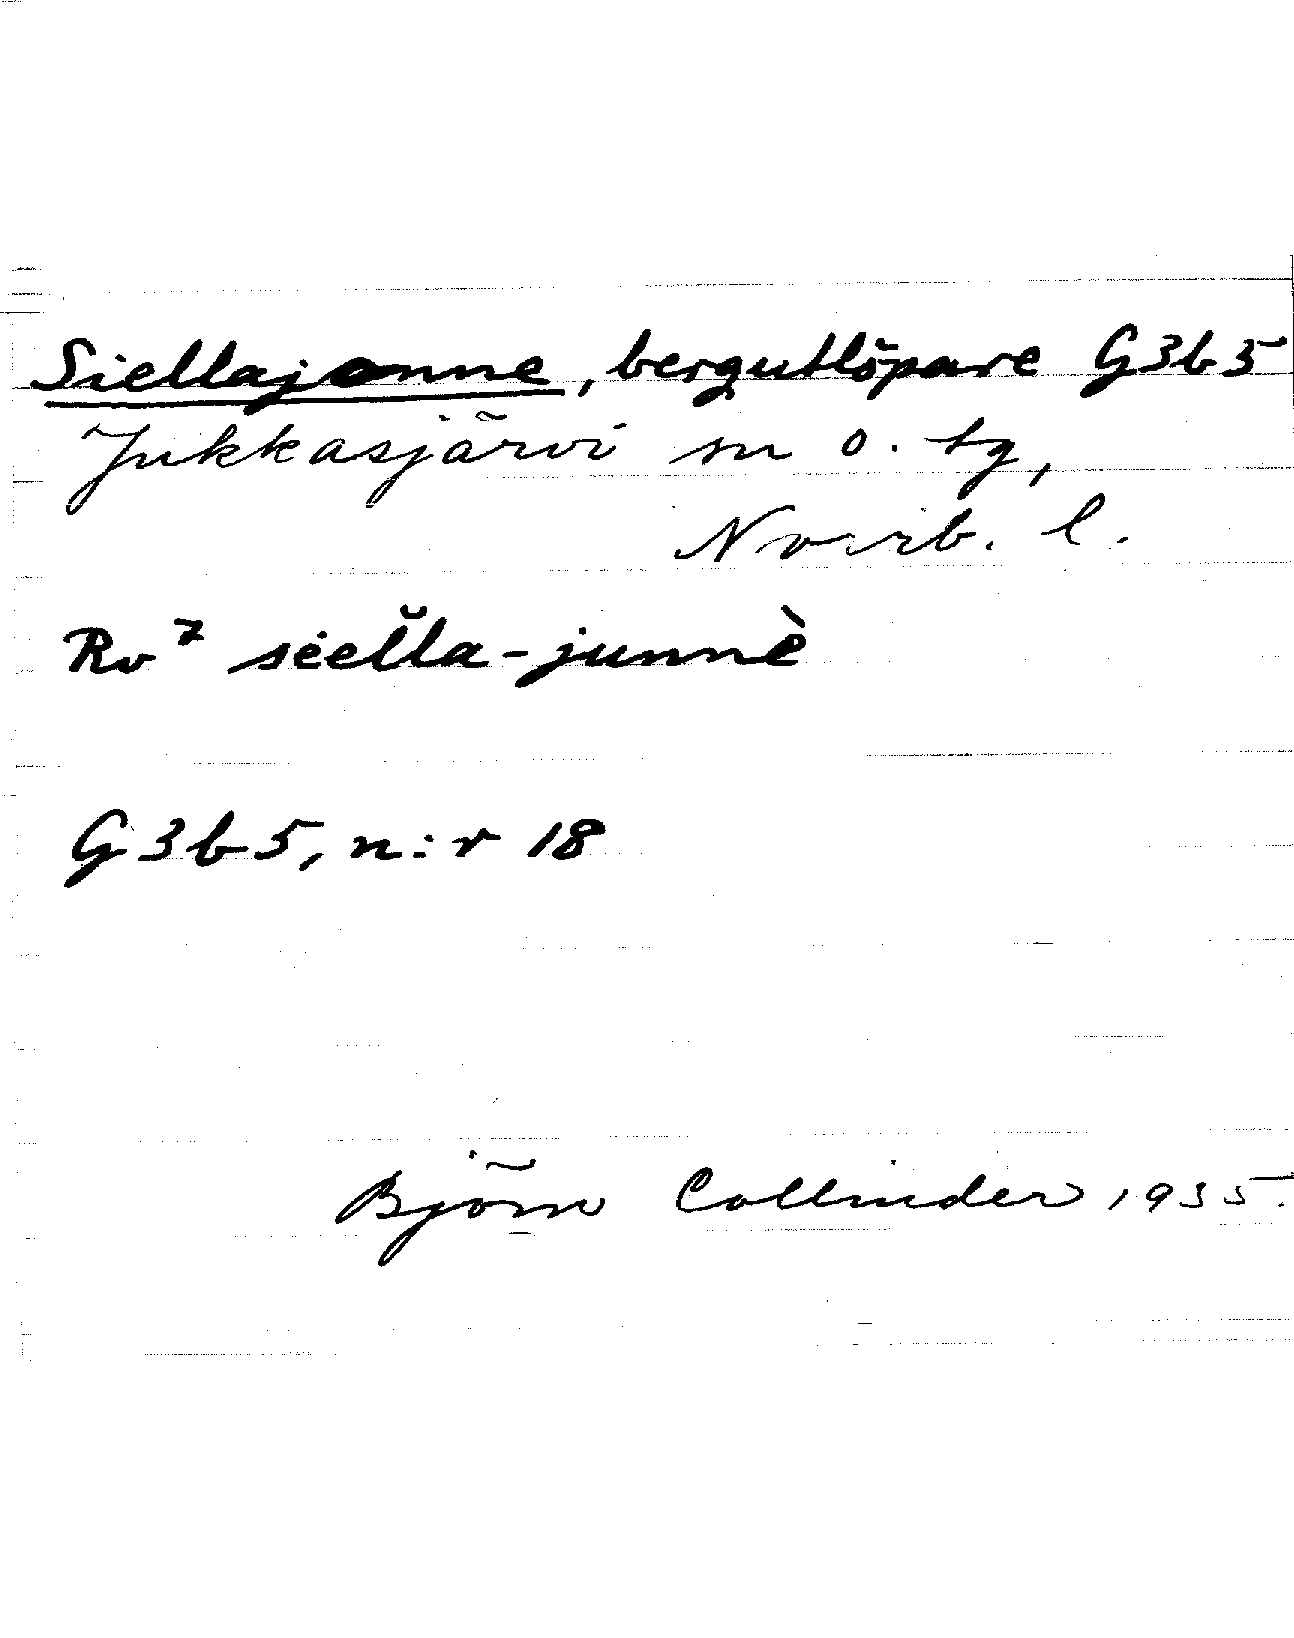 Siellajonne, bergutlöpare G3b5
Jukkasjärvi sn o. tg,
Norrb. l.
Rv⁷ siel̆la-junnè
G3b5, n:r 18
Björn Collinder 1935.